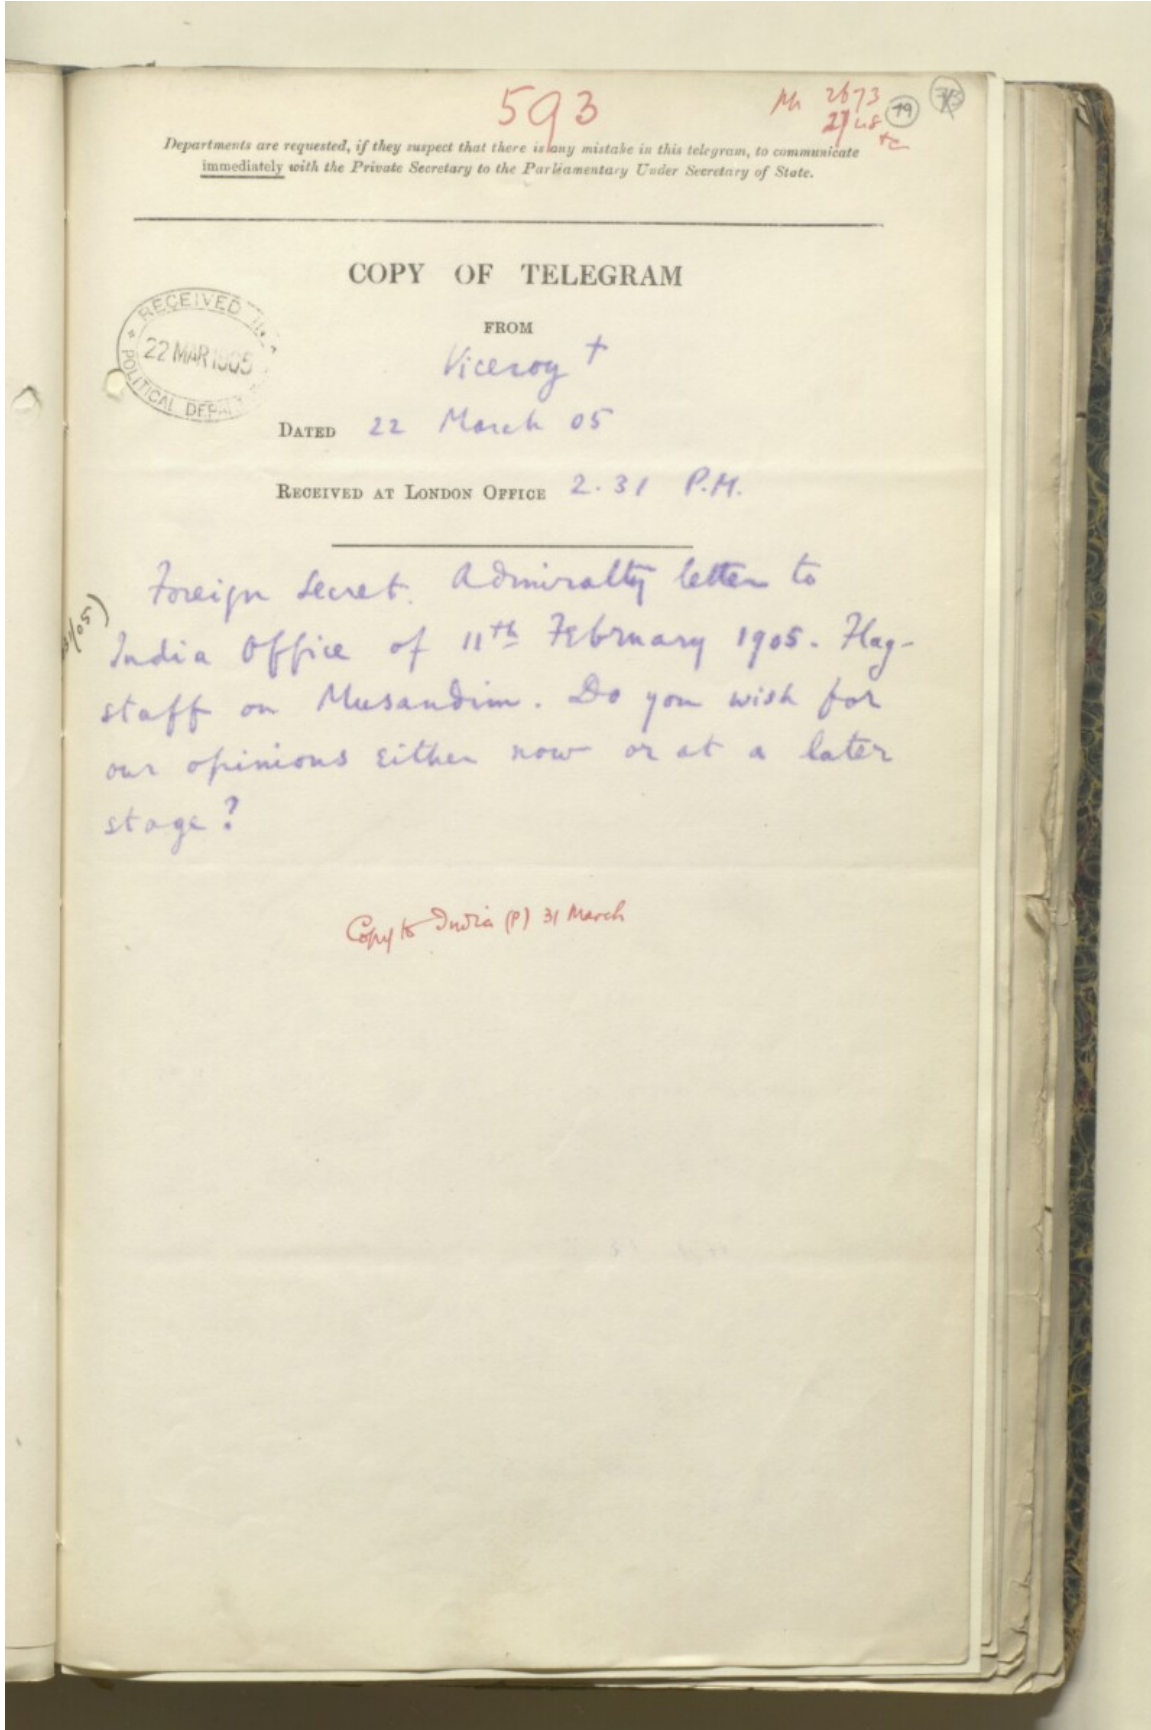 593
2673
79
Departments are requested, if they suspect that there is any mistake in this telegram, to communicate
immediately with the Private Secretary to the Parliamentary Under Secretary of State.
COPY OF TELEGRAM
RECEIVED
22 MAR 1905
POLITICAL DEPA
FROM
Viceroy +
DATED 22 March 05
RECEIVED AT LONDON OFFICE 2.31 P.M.
Foreign Secret. Admiralty letter to
India Office of 11th February 1905. Flag-
staff on Musandim. Do you wish for
our opinions either now or at a later
stage?
Copy to India (P) 31 March